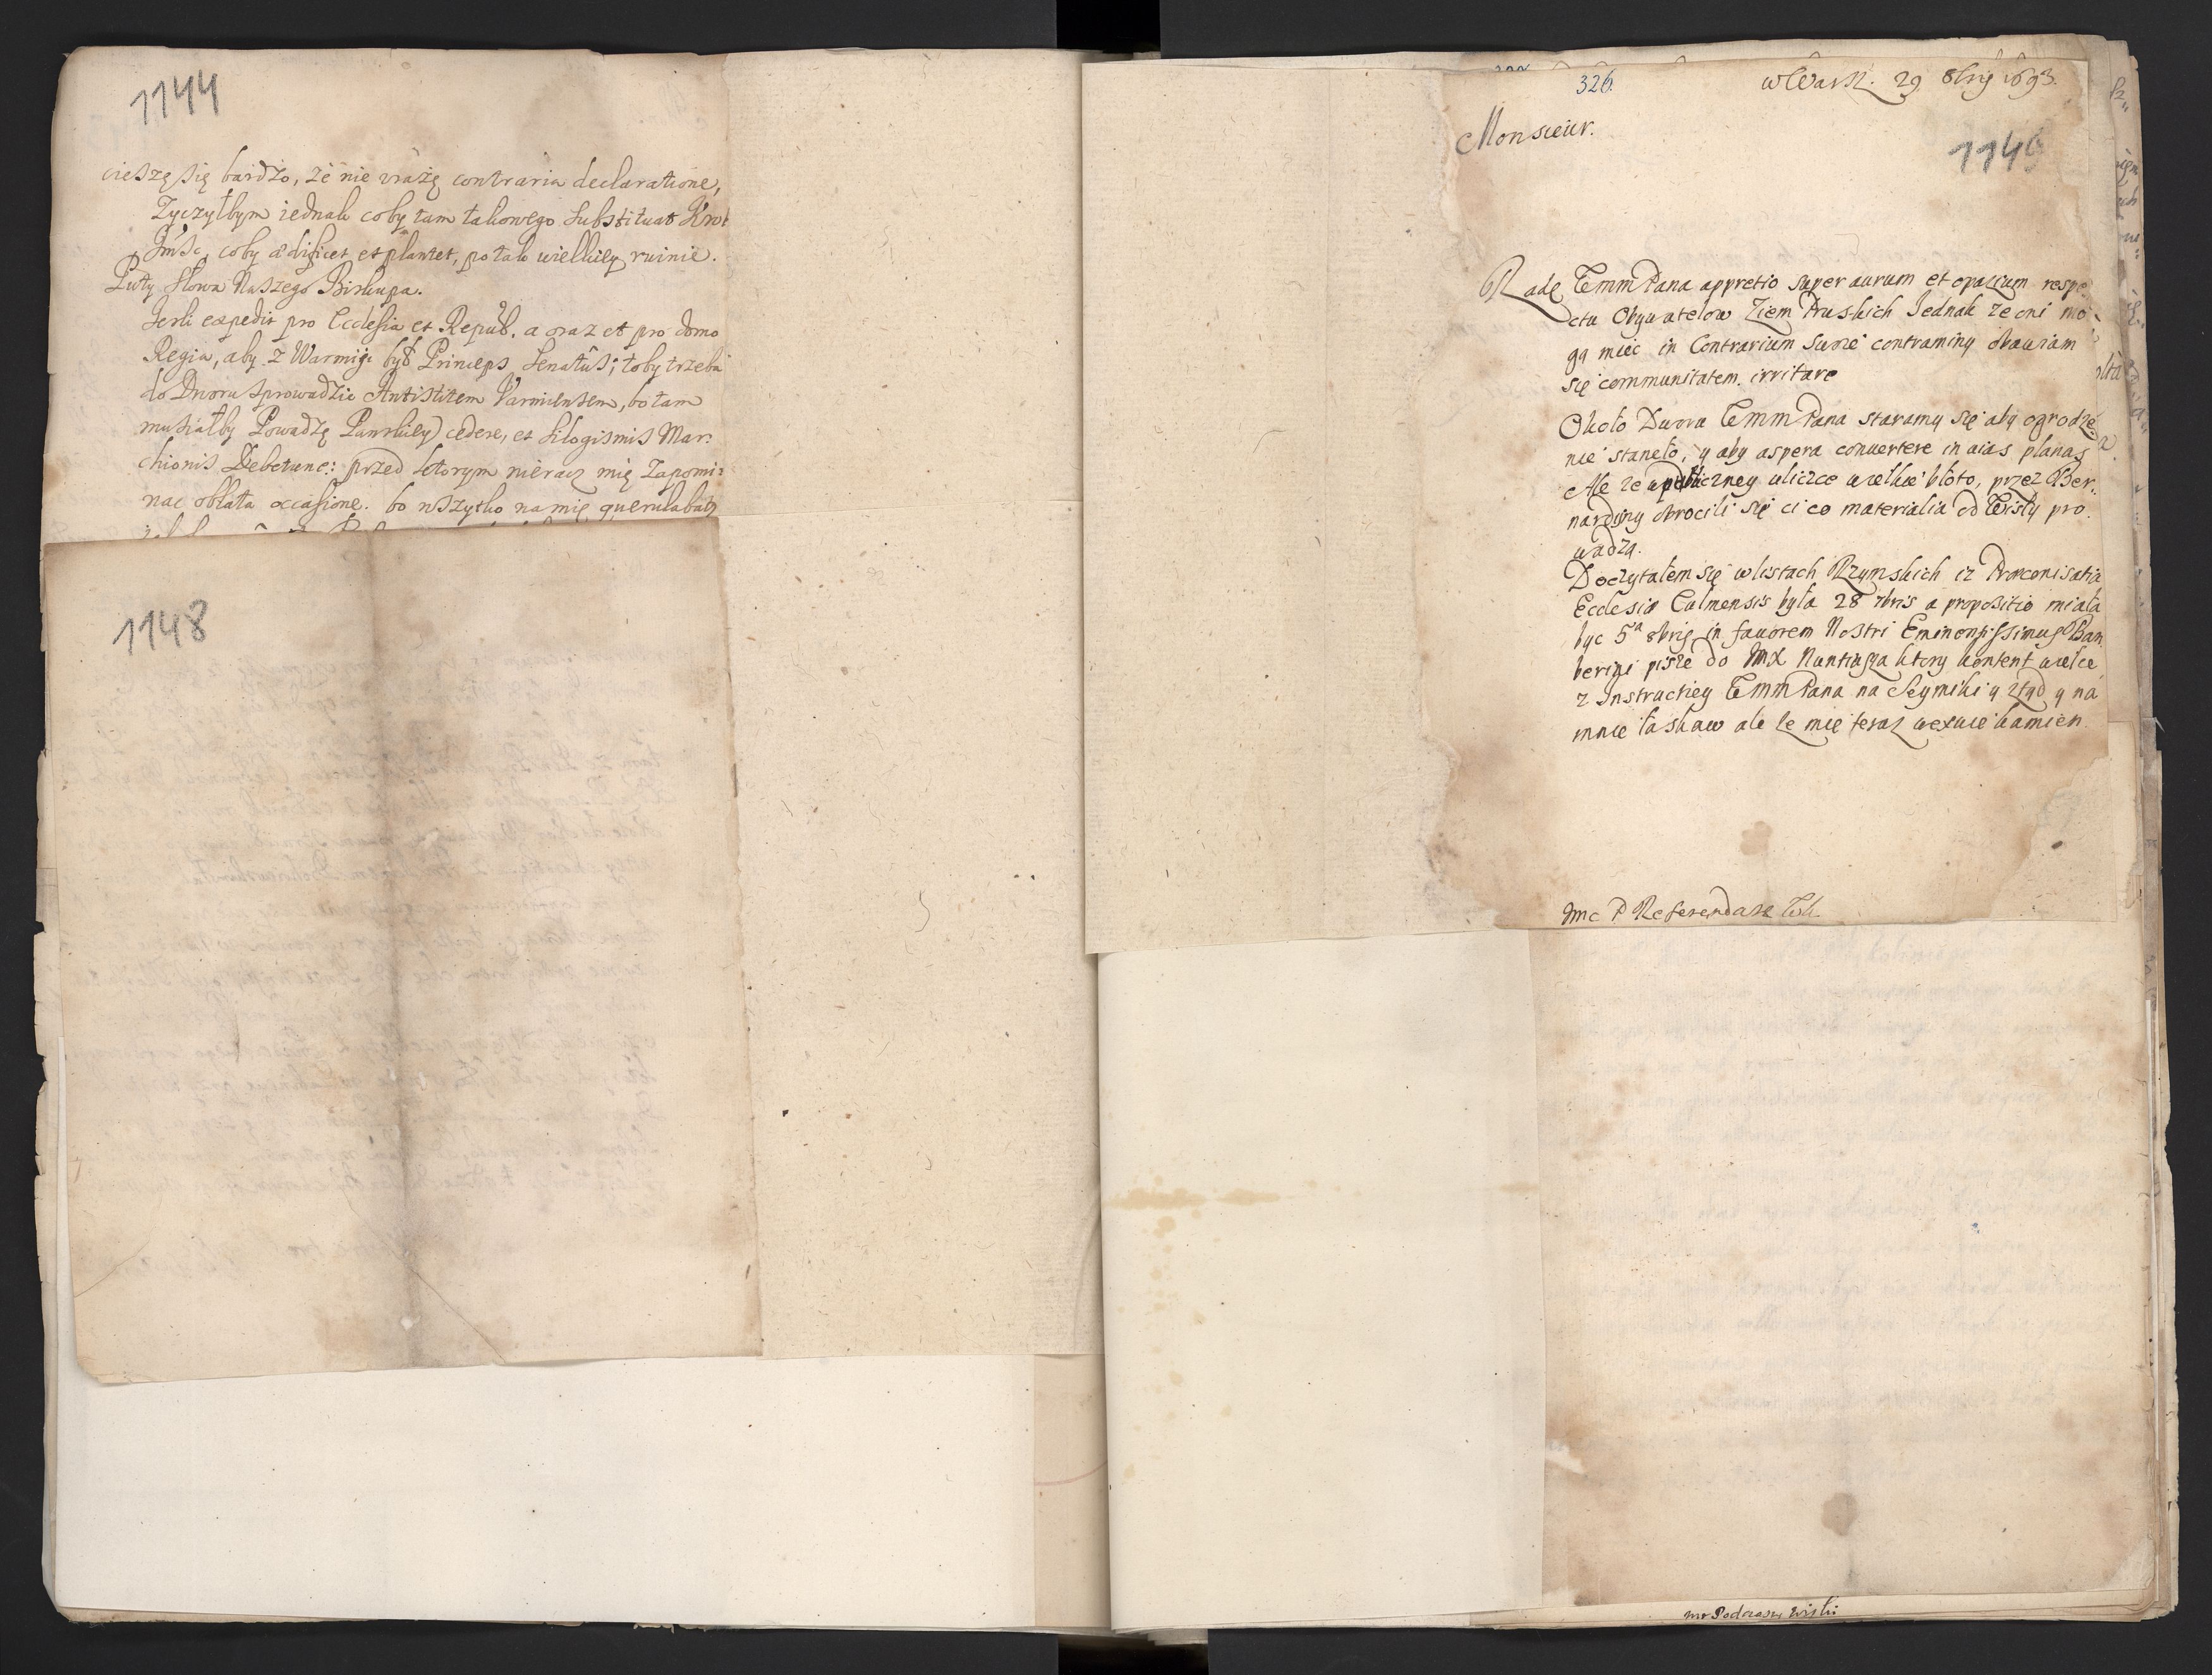 1144
cieszę się bardzo, że nie urażę contraria declaratione,
Zyczyłbym iednak coby tam takowego substituat Krol
Jmść, coby ædificet et plantet, po tak wielkiey ruinie.
Puty słowa Naszego Biskupa.
Jesli expedit pro Ecclesia et Repub. a oraz et pro domo
Regia, aby z Warmiji był Princeps Senatus; toby trzeba
do Dworu sprowadzic Antistitem Varmiensem, bo tam
musiałby Powadzę Panskiey cedere, et silogismis Mar-
chionis Bebetunc: przed ktorym nieracz mię zapomi-
nac oblata occasione. bo wszytko na mię querulabatur
1148
326.
w Warsz. 29 8bris 1693.
Monsieur.
1146
Radę Wmm Pana appretio super aurum et opazium respe-
ctu Obywatelow Ziem Pruskich Jednak ze oni mo-
gą miec in Contrarium swoie contraminy obawiam
się communitatem irritare
Około Dworu Wmm Pana staramy się aby ogrodze-
nie staneło, y aby aspera convertere in vias planas
Ale ze w publiczney uliczce wielkie błoto, przez Ber-
nardyny obrocili się ci co materialia od Wisły pro-
wadzą.
Doczytałem się w listach Rzymskich iz Præconisatia
Ecclesiæ Culmensis była 28 7bris a propositio miała
byc 5ta 8bris in favorem Nostri Eminentissimus Bar-
berini pisze do Jmx Nuntiusza ktory kontent wielce
z Instructiey Wmm Pana na Seymiki y ztąd y na
mnie łaskaw ale ze mię teraz vexuie kamien
Jmc P Referendarz Koł.